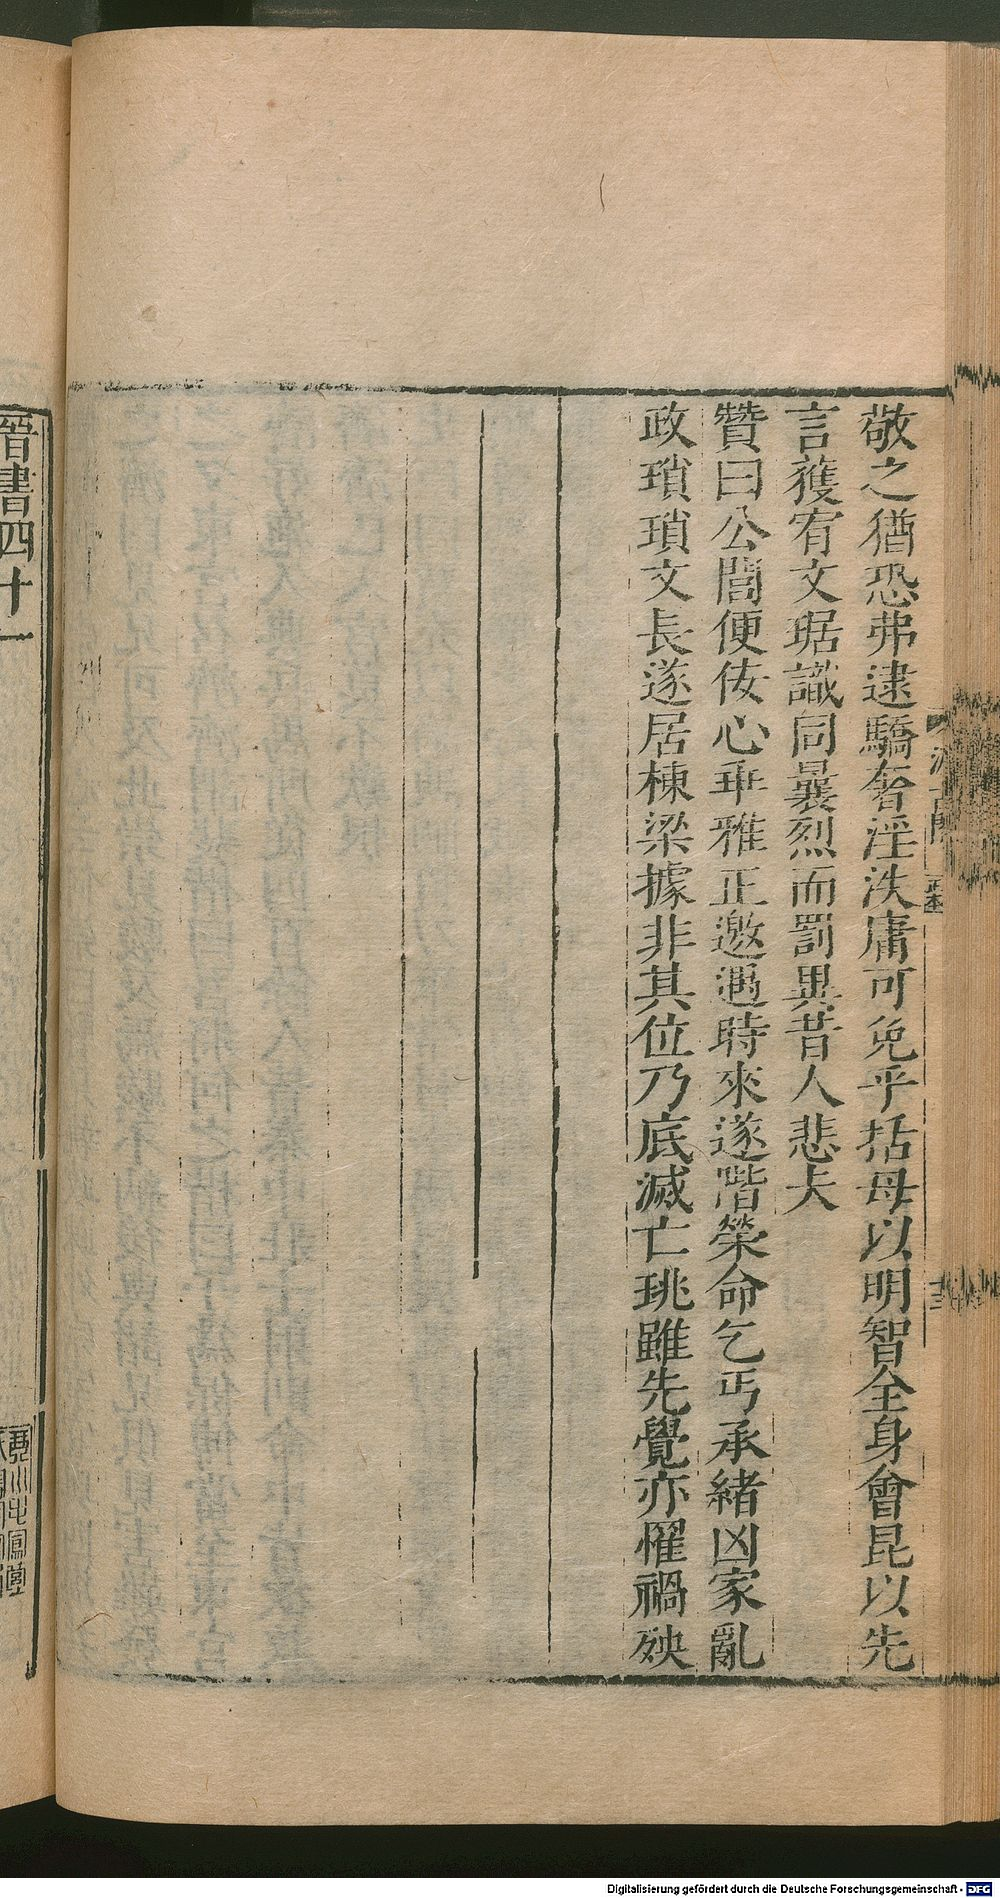 敬之猶恐弗逮驕奢淫泆庸可免乎括母以明智全身會昆以先
言獲宥文琚識同曩烈而罰異昔人悲夫
贊曰公閭便佞心乖雅正邀遇時來遂階榮命乞丐承緒凶家亂
政瑣瑣文長遂居棟梁據非其位乃底滅亡珧雖先覺亦罹禍殃
十三
晉書四十一
Digitalisierung gefördert durch die Deutsche Forschungsgemeinschaft - DFG